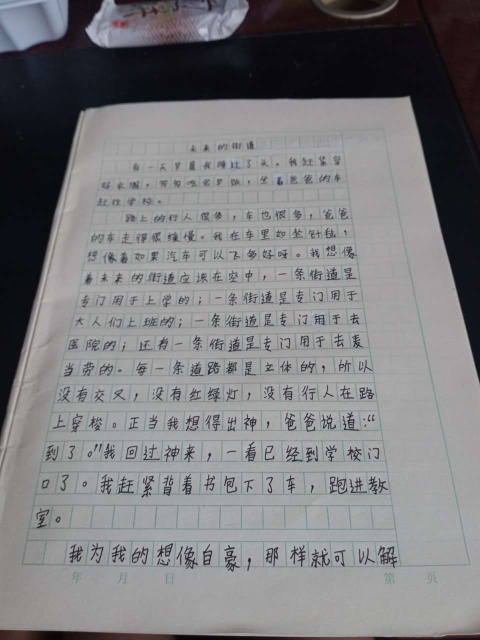 未来的街道
有一天早晨我睡过了头。我赶紧穿
好衣服，匆匆吃完早饭，坐着爸爸的车
赶往学校。
路上的行人很多，车也很多，爸爸
的车走得很缓慢。我在车里如坐针毡，
想像着如果汽车可以飞多好呀。我想像
着未来的街道应该在空中，一条街道是
专门用于上学的；一条街道是专门用于
大人们上班的；一条街道是专门用于去
医院的；还有一条街道是专门用于去麦
当劳的。每一条道路都是立体的，所以
没有交叉，没有红绿灯，没有行人在路
上穿梭。正当我想得出神，爸爸说道：“
到了。”我回过神来，一看已经到学校门
口了。我赶紧背着书包下了车，跑进教
室。
我为我的想像自豪，那样就可以解
年 月 日 第 页